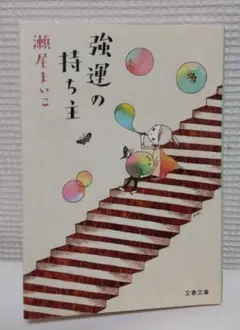 強運の
持ち主
瀬尾まいこ
文春文庫